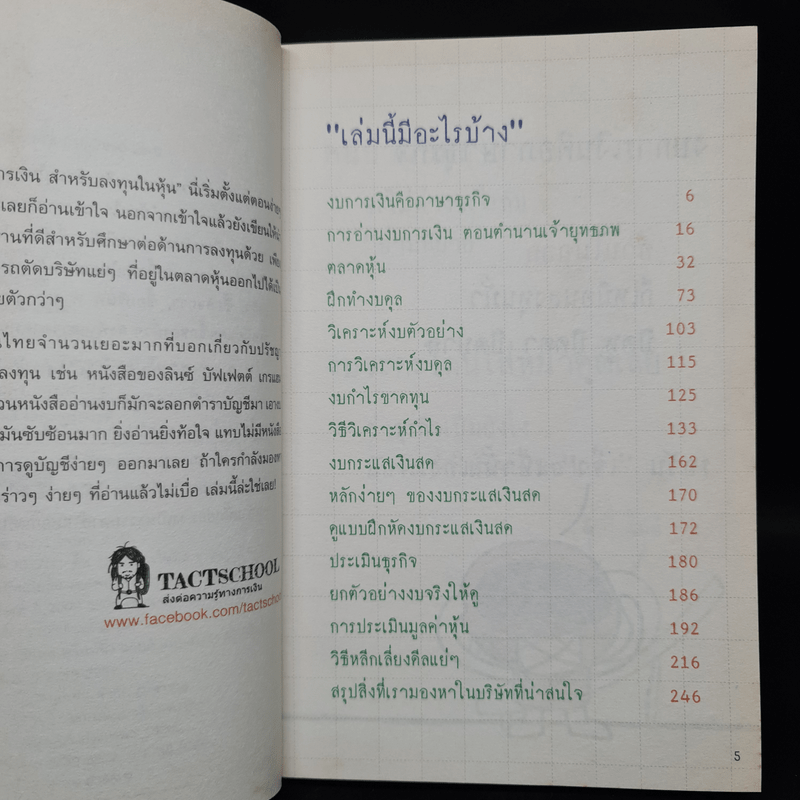 ารเงิน สำหรับลงทุนในหุ้น" นี่เริ่มตั้งแต่ตอนง่ายๆ
เลยก็อ่านเข้าใจ นอกจากเข้าใจแล้วยังเขียนให้
านที่ดีสำหรับศึกษาต่อด้านการลงทุนด้วย
รถตัดบริษัทแย่ๆ ที่อยู่ในตลาดหุ้นออกไปได้
ยตัวกว่าๆ
นไทยจำนวนเยอะมากที่บอกเกี่ยวกับปรัชญา
ลงทุน เช่น หนังสือของลินซ์ บัฟเฟตต์
วนหนังสืออ่านงบก็มักจะลอกตำราบัญชีมา
มันซับซ้อนมาก ยิ่งอ่านยิ่งท้อใจ แทบไม่มีหนังสือ
การดูบัญชีง่ายๆ ออกมาเลย ถ้าใครกำลังมองหา
ร่าวๆ ง่ายๆ ที่อ่านแล้วไม่เบื่อ เล่มนี้ล่ะใช่เลย!
TACTSCHOOL
ส่งต่อความรู้ทางการเงิน
www.facebook.com/tactschool
"เล่มนี้มีอะไรบ้าง"
งบการเงินคือภาษาธุรกิจ 6
การอ่านงบการเงิน ตอนตำนานเจ้ายุทธภพ 16
ตลาดหุ้น 32
ฝึกทำงบดุล 73
วิเคราะห์งบตัวอย่าง 103
การวิเคราะห์งบดุล 115
งบกำไรขาดทุน 125
วิธีวิเคราะห์กำไร 133
งบกระแสเงินสด 162
หลักง่ายๆ ของงบกระแสเงินสด 170
ดูแบบฝึกหัดงบกระแสเงินสด 172
ประเมินธุรกิจ 180
ยกตัวอย่างงบจริงให้ดู 186
การประเมินมูลค่าหุ้น 192
วิธีหลีกเลี่ยงดีลแย่ๆ 216
สรุปสิ่งที่เรามองหาในบริษัทที่น่าสนใจ 246
5